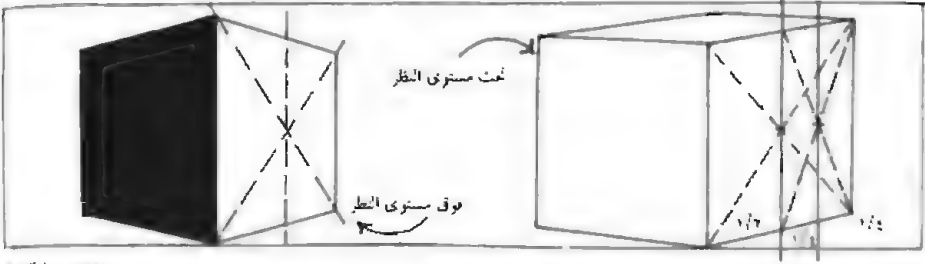 تحت مستوى النظر
فوق مستوى النظر
١/٢
١/٤